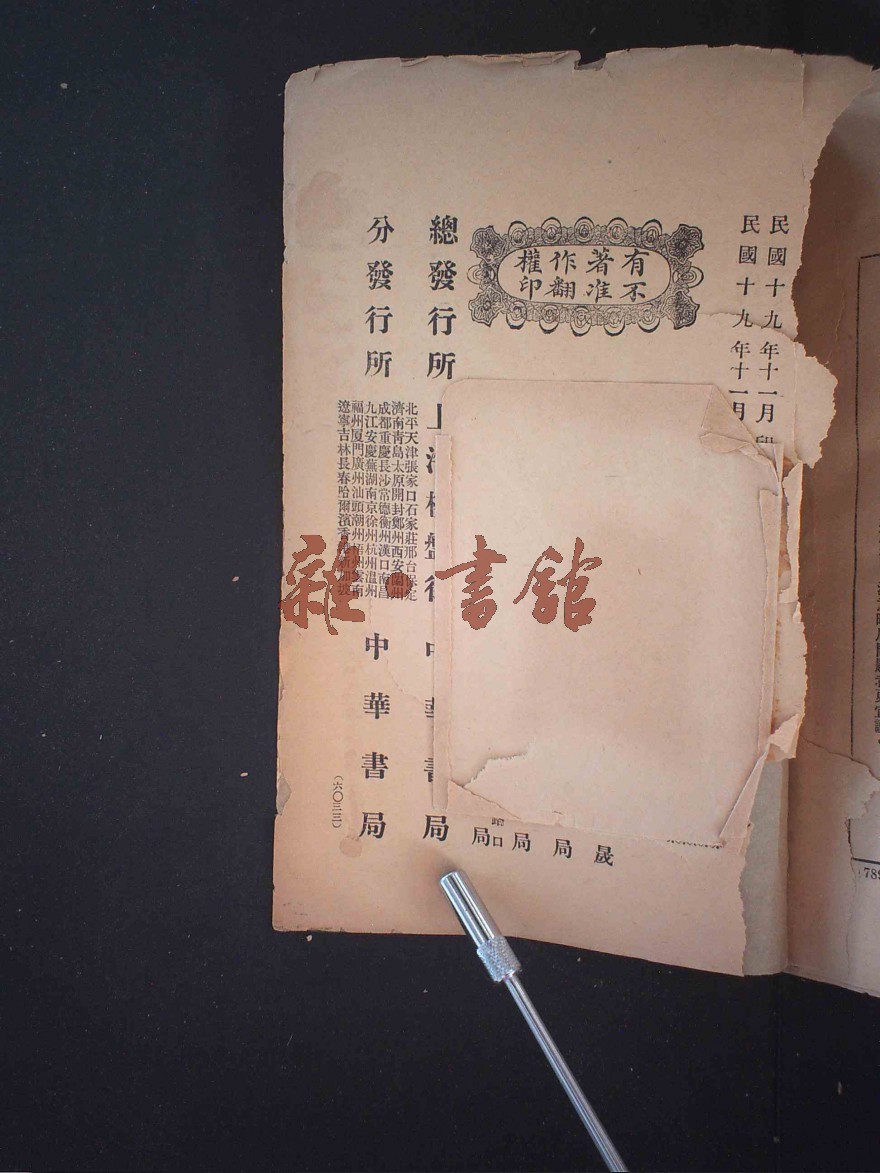 民國十九年十一月印
民國十九年十一月
有著作權
不准翻印
晟
局
局
局
口
總發行所 上海棋盤街 中華書局
分發行所 中華書局
北平天津張家口石家莊邢台保定
濟南青島太原開封鄭州西安蘭州
成都重慶長沙常德衡州漢口南昌
九江安慶蕪湖南京徐州杭州温州
福州厦門廣州汕頭潮州梧州雲南
遼寧吉林長春哈爾濱香港新加坡
(六〇三三)
雜書館
789